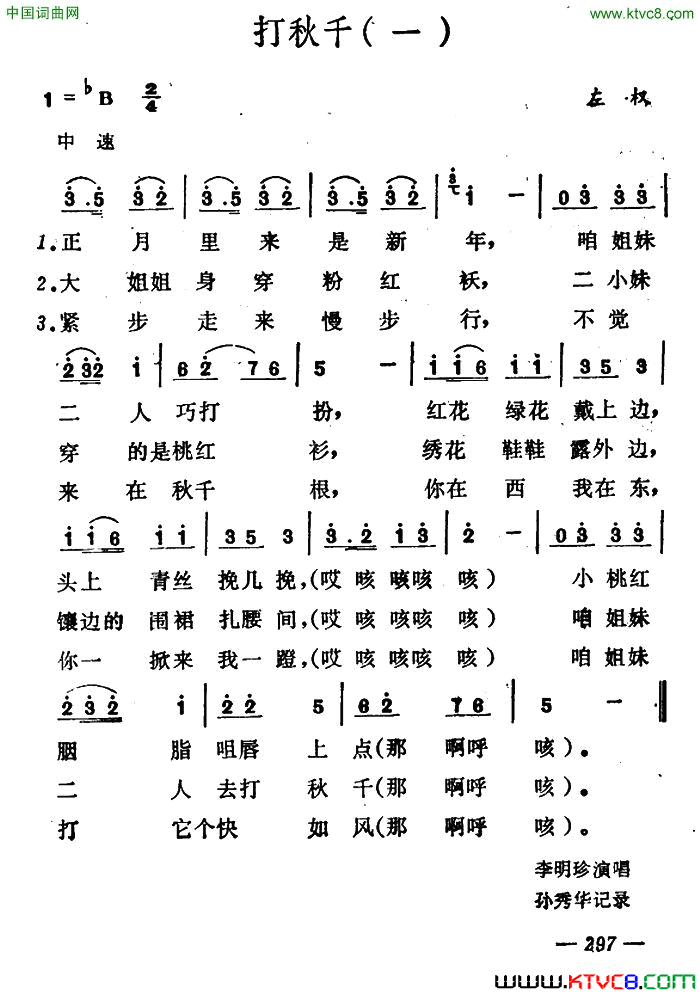 中国词曲网
www.ktvc8.com
打秋千(一)
1=♭B 2/4
左权
中速
3.5 32 | 3.5 32 | 3.5 32 | 3/7 1 - | 03 33 |
1.正 月 里 来 是 新 年, 咱 姐妹
2.大 姐姐 身 穿 粉 红 袄, 二 小妹
3.紧 步 走 来 慢 步 行, 不 觉
232 1 | 62 76 | 5 - | 116 11 | 35 3 |
二 人 巧打 扮, 红花 绿花 戴上 边,
穿 的是 桃红 衫, 绣花 鞋鞋 露外 边,
来 在 秋千 根, 你在 西 我在 东,
116 11 | 35 3 | 3.2 13 | 2 - | 03 33 |
头上 青丝 挽几 挽,(哎 咳 咳咳 咳) 小 桃红
镶边的 围裙 扎腰 间,(哎 咳 咳咳 咳) 咱 姐妹
你一 掀来 我一 蹬,(哎 咳 咳咳 咳) 咱 姐妹
232 1 | 22 5 | 62 76 | 5 - ‖
胭 脂 咀唇 上 点(那 啊呼 咳)。
二 人 去打 秋 千(那 啊呼 咳)。
打 它个快 如 风(那 啊呼 咳)。
李明珍演唱
孙秀华记录
— 297 —
www.KTVC8.com